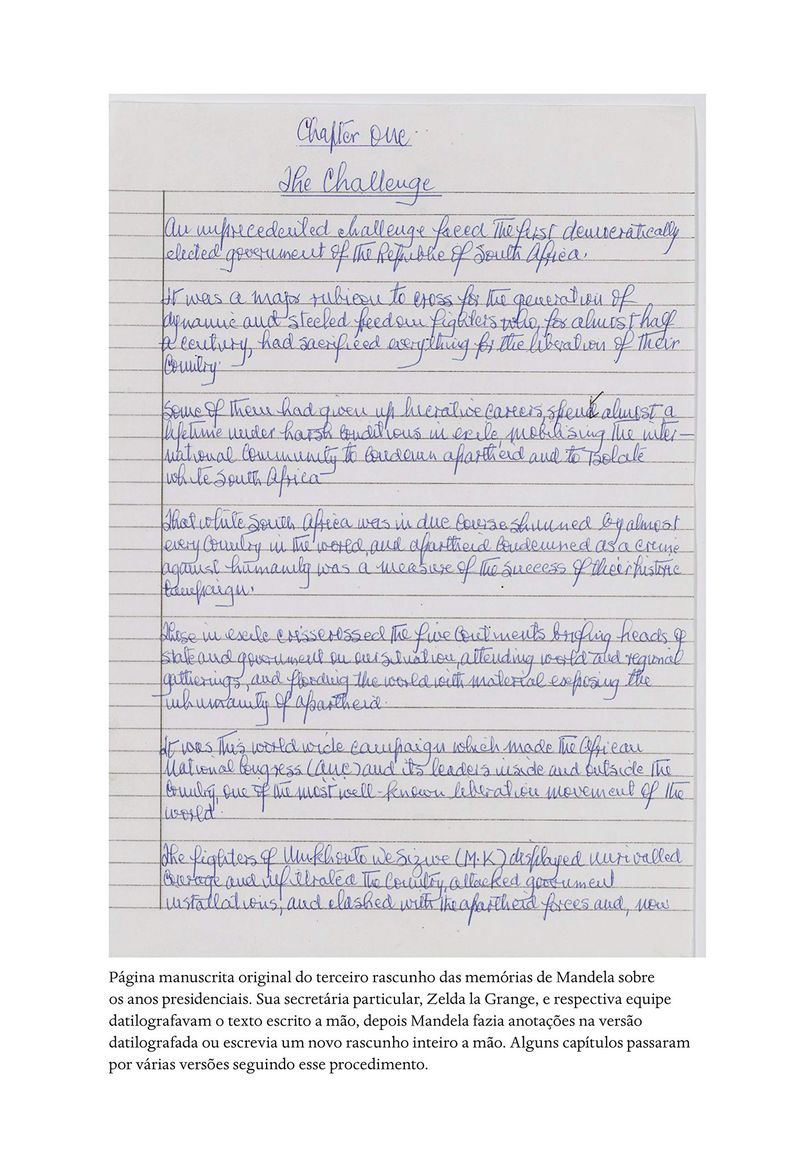 Chapter One.
The Challenge
An unprecedented challenge faced the first democratically
elected government of the Republic of South Africa.
It was a major rubicon to cross for the generation of
dynamic and steeled freedom fighters who, for almost half
a century, had sacrificed everything for the liberation of their
Country.
Some of them had given up lucrative careers, spent almost a
lifetime under harsh conditions in exile, mobilising the inter-
national community to condemn apartheid and to isolate
white South Africa
That white South Africa was in due course shunned by almost
every country in the world, and apartheid condemned as a crime
against humanity was a measure of the success of their historic
campaign.
Those in exile crisscrossed the five continents briefing heads of
state and government on our situation, attending world and regional
gatherings, and flooding the world with material exposing the
inhumanity of apartheid.
It was this world wide campaign which made the African
National Congress (ANC) and its leaders inside and outside the
Country, one of the most well-known liberation movement of the
world.
The fighters of Umkhonto We Sizwe (M.K) displayed unrivalled
courage and infiltrated the country, attacked government
installations, and clashed with the apartheid forces and, now
Página manuscrita original do terceiro rascunho das memórias de Mandela sobre
os anos presidenciais. Sua secretária particular, Zelda la Grange, e respectiva equipe
datilografavam o texto escrito a mão, depois Mandela fazia anotações na versão
datilografada ou escrevia um novo rascunho inteiro a mão. Alguns capítulos passaram
por várias versões seguindo esse procedimento.